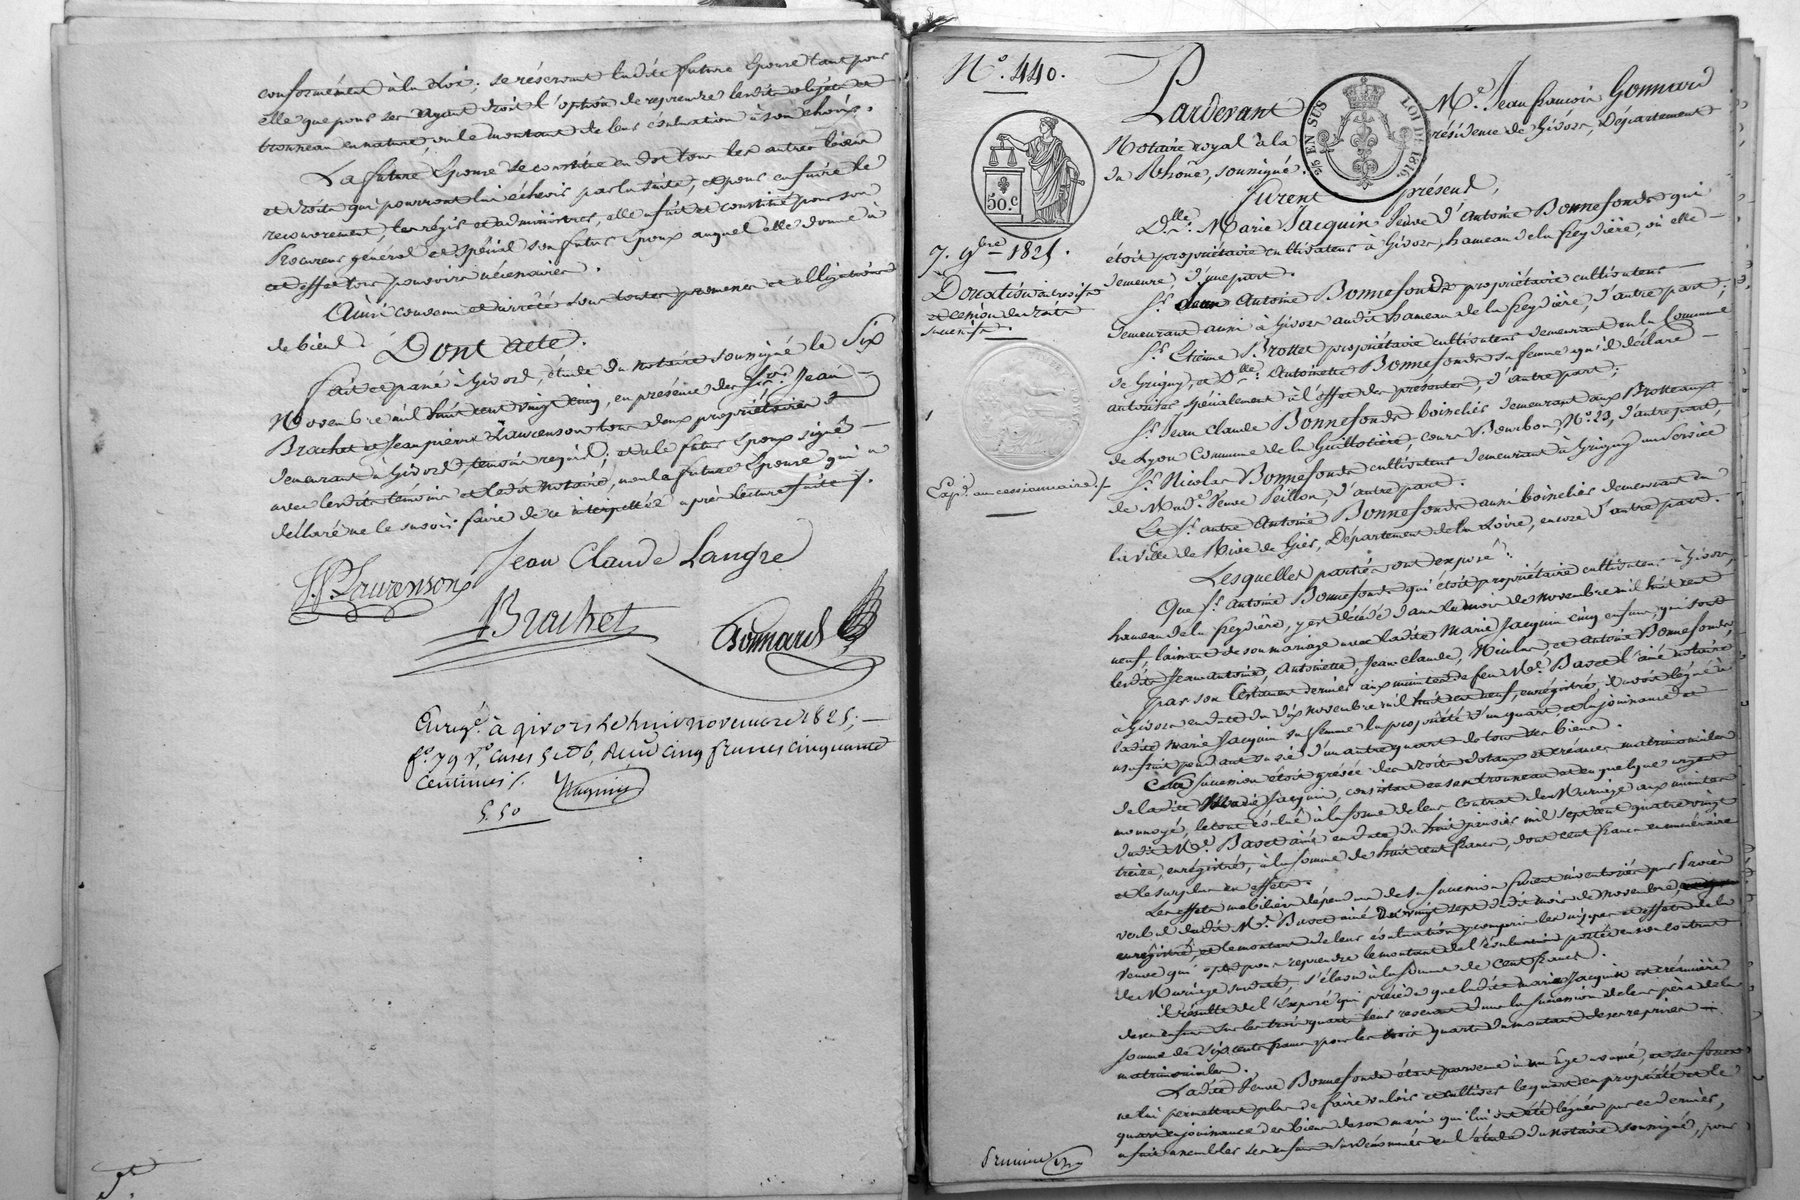 conformément à la Loi; se réservant ladite future Epouse tant pour
elle que pour ses ayant droit l'option de reprendre lesdits objets et
trousseau en nature, ou le montant de leur évaluation à son choix.
La future Epouse se constitue en dot tous les autres biens
et droits qui pourront lui échoir par la suite, et pour en faire le
recouvrement, les régir et administrer, elle a fait et constitué pour son
Procureur général et spécial son futur Epoux auquel elle donne à
cet effet tous pouvoirs nécessaires.
Ainsi convenu et arrêté sous toutes promesses et obligations
de biens.
Dont acte.
Fait et passé à Givors, étude du notaire soussigné le Six
Novembre mil huit cent vingt cinq, en présence des Srs. Jean
Brachet et Jean pierre Laurenson tous deux propriétaires
demeurant à Givors, témoins requis; et a le futur Epoux signé
avec lesdits témoins et ledit notaire, non la future Epouse qui a
déclaré ne le savoir faire de ce interpellée après lecture faite.
Jean Claude Langre
JP. Laurenson
Brachet
Gonnard
Enregé. à givors le huit novembre 1825;
fo. 79 vo. cases 5 et 6, Reçu cinq francs cinquante
centimes
5.50
No. 440.
Pardevant Me. Jean françois Gonnard
Notaire royal à la résidence de Givors, Département
du Rhône, soussigné.
Furent présent,
25 EN SUS
LOI DE 1816.
50.c
7. 9bre 1825.
Donation entre vifs
et cession de droits
successifs
Expn. au cessionnaire
Dlle. Marie Jacquin Veuve d'Antoine Bonnefonds qui
étoit propriétaire cultivateur à Givors, hameau de la freydière, où elle
demeure, d'une part.
Sr. Antoine Bonnefonds propriétaire cultivateur
demeurant aussi à Givors audit hameau de la freydière, d'autre part;
Sr. Etienne Brottet propriétaire cultivateur demeurant en la Commune
de Grigny, et Dlle. Antoinette Bonnefonds sa femme qu'il déclare
autoriser spécialement à l'effet des présentes, d'autre part;
Sr. Jean Claude Bonnefonds boisselier demeurant aux Brotteaux
de Lyon Commune de la Guillotière cours Bourbon No. 23, d'autre part,
Sr. Nicolas Bonnefonds cultivateur demeurant à Grigny au Service
de Made. Veuve Peillon, d'autre part.
Et Sr. autre Antoine Bonnefonds aussi boisselier demeurant en
la ville de Rive de Gier, Département de la Loire, encore d'autre part.
Lesquelles parties ont exposé:
Que Sr. Antoine Bonnefonds qui étoit propriétaire cultivateur à Givors,
hameau de la freydière, y est décédé dans le mois de novembre mil huit cent
neuf, laissant de son mariage avec ladite Marie Jacquin cinq enfans, qui sont
lesdits Jean Antoine, Antoinette, Jean Claude, Nicolas, et Antoine Bonnefonds,
par son testament dernier aux minutes de feu Me. Basset l'ainé notaire
à Givors en date du dix novembre mil huit cent neuf, enregistré, il avoit légué à
ladite Marie Jacquin sa femme la propriété d'un quart et la jouissance et
usufruit pendant sa vie d'un autre quart de tous ses biens.
Cette succession étoit grévée des droits dotaux et créances matrimoniales
de ladite Marie Jacquin, consistant en son trousseau et en quelque argent
monnoyé, le tout évalué à la forme de leur Contrat de Mariage aux minutes
dudit Me. Basset ainé en date du huit janvier mil sept cent quatre vingt
treize, enregistré, à la somme de huit cent francs, dont cent francs en numéraire
et le surplus en effets.
Les effets mobiliers dépendans de sa succession furent inventoriés par Procès
verbal dudit Me. Basset ainé du vingt sept dudit mois de novembre,
enregistré, et le montant de leur évaluation y compris les nippes et effets de la
Veuve qui opta pour reprendre le montant de l'évaluation portée en son Contrat
de Mariage susdaté, s'éleva à la somme de cent francs.
il résulte de l'Exposé qui précède que ladite marie Jacquin est créancière
de ses enfans sur les trois quarts leur revenant dans la succession de leur père de la
somme de six cents francs pour les trois quarts du montant de ses reprises
matrimoniales.
Ladite Veuve Bonnefonds étant parvenue à un âge avancé, et ses forces
ne lui permettant plus de faire valoir et cultiver le quart en propriété et le
quart en jouissance des biens de son mari qui lui ont été légués par ce dernier,
a fait assembler ses enfans susnommés en l'étude du notaire soussigné, pour